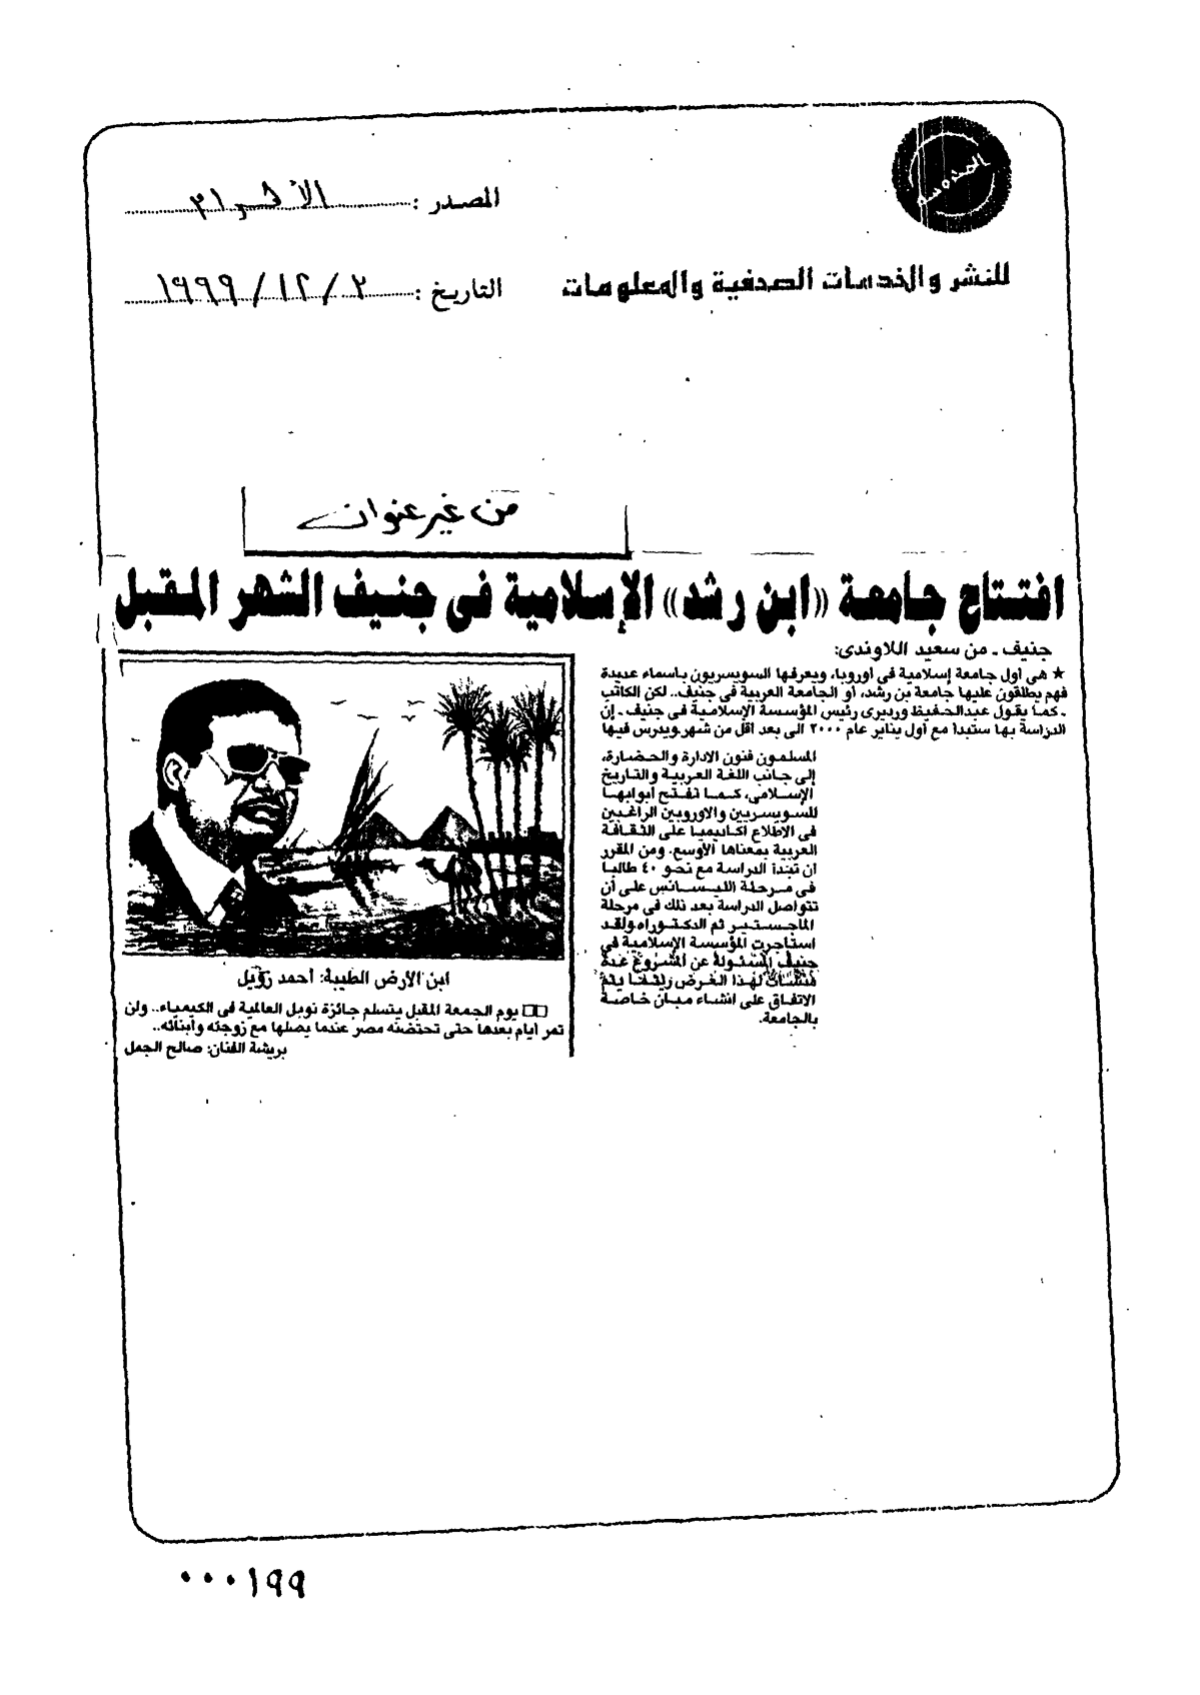 المصدر : الأهرام
للنشر والخدمات الصحفية والمعلومات
التاريخ : ٢ / ١٢ / ١٩٩٩
من غير عنوان
افتتاح جامعة «ابن رشد» الإسلامية فى جنيف الشهر المقبل
جنيف ـ من سعيد اللاوندى:
★ هى أول جامعة إسلامية فى أوروبا، ويعرفها السويسريون باسماء عديدة
فهم يطلقون عليها جامعة بن رشد، أو الجامعة العربية فى جنيف.. لكن الكاتب
ـ كما يقول عبدالحفيظ ورديرى رئيس المؤسسة الإسلامية فى جنيف ـ إن
الدراسة بها ستبدأ مع أول يناير عام ٢٠٠٠ الى بعد أقل من شهر ويدرس فيها
المسلمون فنون الادارة والحضارة،
إلى جانب اللغة العربية والتاريخ
الإسلامى، كما تفتح أبوابها
للسويسريين والاوروبيين الراغبين
فى الاطلاع اكاديميا على الثقافة
العربية بمعناها الأوسع. ومن المقرر
ان تبدأ الدراسة مع نحو ٤٠ طالبا
فى مرحلة الليسانس على أن
تتواصل الدراسة بعد ذلك فى مرحلة
الماجستير ثم الدكتوراه ولقد
استاجرت المؤسسة الإسلامية فى
جنيف المسئولة عن المشروع عدة
منشآت لهذا الغرض ريثما يتم
الاتفاق على انشاء مبان خاصة
بالجامعة.
ابن الأرض الطيبة: أحمد زويل
□□ يوم الجمعة المقبل يتسلم جائزة نوبل العالمية فى الكيمياء.. ولن
تمر أيام بعدها حتى تحتضنه مصر عندما يصلها مع زوجته وأبنائه..
بريشة الفنان: صالح الجمل
٠٠٠١٩٩